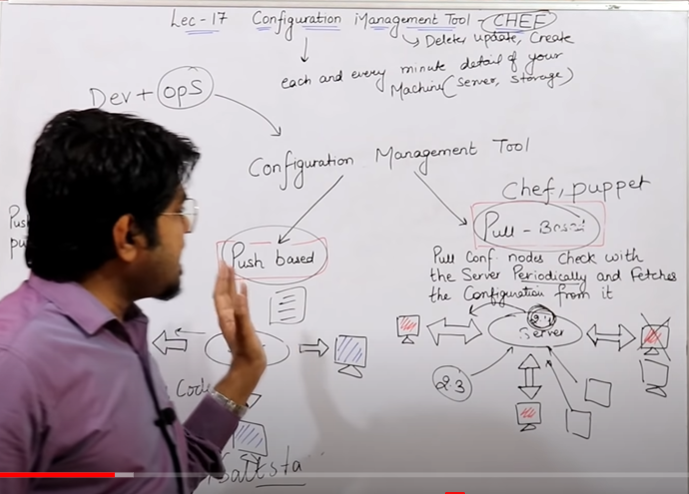 Lec-17 Configuration Management Tool - CHEF
Delete, update, Create
each and every minute detail of your
Machine (Server, Storage)
Dev + OpS
Configuration Management Tool
Chef, puppet
Push based
Pull-Based
Pull Conf. nodes check with
the Server Periodically and Fetches
the Configuration from it
Server
2.3
Code